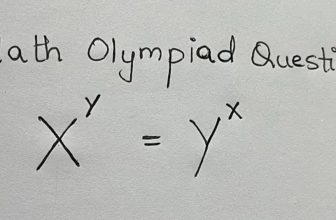 ath Olympiad Questi
X^y = y^x